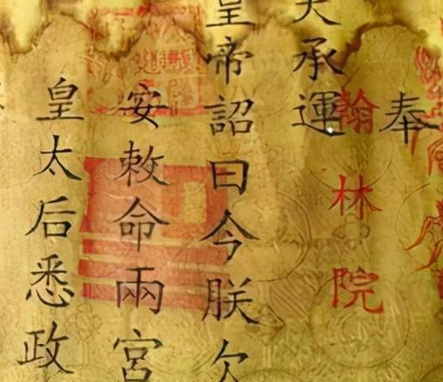 奉
天承運
皇帝詔曰今朕欠
安敕命兩宮
皇太后悉政
翰林院